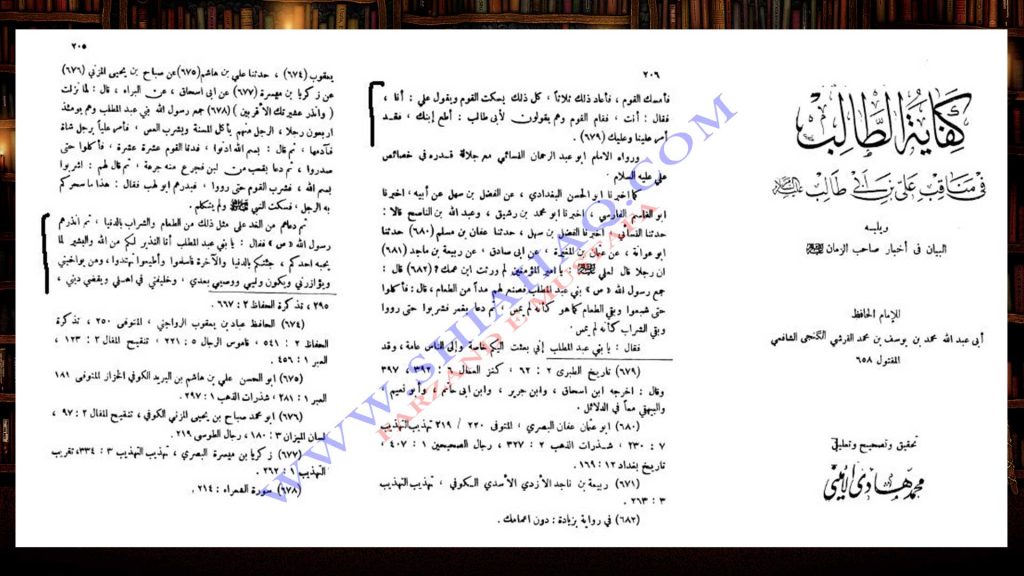 كفاية الطالب
في مناقب علي بن أبي طالب
ويليه
البيان في أخبار صاحب الزمان
للإمام الحافظ
أبي عبد الله محمد بن يوسف بن محمد القرشي الكنجي الشافعي
المقتول ٦٥٨
تحقيق وتصحيح وتعليق
محمد هادي الأميني
٢٠٥
يعقوب (٦٧٤) ، حدثنا علي بن هاشم (٦٧٥) عن صباح بن يحيى المزني (٦٧٦)
عن زكريا بن ميسرة (٦٧٧) عن ابى اسحاق ، عن البراء ، قال : لما نزلت
( وأنذر عشيرتك الأقربين ) (٦٧٨) جمع رسول الله بني عبد المطلب وهم يومئذ
اربعون رجلا ، الرجل منهم يأكل المسنة ويشرب العس ، فأمر علياً برجل شاة
فآدمها ، ثم قال : بسم الله ادنوا ، فدنا القوم عشرة عشرة ، فأكلوا حتى
صدروا ، ثم دعا بقعب من لبن فجرع منه جرعة ، ثم قال لهم : اشربوا
بسم الله ، فشرب القوم حتى رووا ، فبدرهم ابو لهب فقال : هذا ما سحركم
به الرجل ، فسكت النبي ﷺ ولم يتكلم .
ثم دعاهم من الغد على مثل ذلك من الطعام والشراب بالدنيا ، ثم انذرهم
رسول الله « ص » فقال : يا بني عبد المطلب أنا النذير لكم من الله والبشير لما
يجبه احدكم ، جئتكم بالدنيا والآخرة فاسلموا وأطيعوا تهتدوا ، ومن يواخيني
ويؤازرني ويكون وليي ووصيي بعدي ، وخليفتي في اهلي ويقضي ديني ،
٢٩٥ ، تذكرة الحفاظ ٢ : ٦٦٧ .
(٦٧٤) الحافظ عباد بن يعقوب الرواجني ، المتوفى ٢٥٠ ، تذكرة
الحفاظ ٢ : ٥٤١ ، قاموس الرجال ٥ : ٢٢١ ، تنقيح المقال ٢ : ١٢٣ ،
العبر ١ : ٤٥٦ .
(٦٧٥) ابو الحسن علي بن هاشم بن البريد الكوفي الخزاز المتوفى ١٨١
العبر ١ : ٢٨١ ، شذرات الذهب ١ : ٢٩٧ .
(٦٧٦) ابو محمد صباح بن يحيى المزني الكوفي ، تنقيح المقال ٢ : ٩٧ ،
لسان الميزان ٣ : ١٨٠ ، رجال الطوسي ٢١٩ .
(٦٧٧) زكريا بن ميسرة البصري ، تهذيب التهذيب ٣ : ٣٣٤ ، تقريب
التهذيب ١ : ٢٦٢ .
(٦٧٨) سورة الشعراء : ٢١٤ .
٢٠٦
فأمسك القوم ، فأعاد ذلك ثلاثاً ، كل ذلك يسكت القوم ويقول علي : أنا ،
فقال : أنت ، فقام القوم وهم يقولون لأبى طالب : أطع إبنك ، فقد
أمر علينا وعليك (٦٧٩) .
ورواه الامام ابو عبد الرحمان النسائي مع جلالة قدره في خصائص
علي عليه السلام
كما اخبرنا ابو الحسن البغدادي ، عن الفضل بن سهل عن أبيه ، اخبرنا
ابو القاسم الفارسي ، اخبرنا ابو محمد بن رشيق ، وعبد الله بن الناسح قالا :
حدثنا النسائي ، اخبرنا الفضل بن سهل ، حدثنا عفان بن مسلم (٦٨٠) حدثنا
ابو عوانة ، عن بن المغيرة ، عن ابى صادق ، عن ربيعة بن ماجد (٦٨١)
ان رجلا قال لعلي : يا امير المؤمنين لم ورثت ابن عمك ؟ (٦٨٢) قال :
جمع رسول الله « ص » بني عبد المطلب فصنع لهم مداً من الطعام ، قال : فأكلوا
حتى شبعوا وبقي الطعام كما هو كأنه لم يمس ، ثم دعا بغمر فشربوا حتى رووا
وبقي الشراب كأنه لم يمس .
فقال : يا بني عبد المطلب إني بعثت اليكم خاصة وإلى الناس عامة ، وقد
(٦٧٩) تاريخ الطبرى ٢ : ٦٢ ، كنز العمال ٦ : ٣٩٢ ، ٣٩٧
وقال : اخرجه ابن اسحاق ، وابن جرير ، وابن ابى حاتم ، وأبو نعيم ،
والبيهقي معاً في الدلائل .
(٦٨٠) ابو عثمان عفان البصري ، المتوفى ٢٢٠ / ٢١٩ تهذيب التهذيب
٧ : ٢٣٠ ، شذرات الذهب ٢ : ٣٢٧ ، رجال الصحيحين ١ : ٤٠٧ ،
تاريخ بغداد ١٢ : ١٦٩ .
(٦٧١) ربيعة بن ناجد الأزدي الأسدي الكوفي ، تهذيب التهذيب
٣ : ٢٦٣ .
(٦٨٢) في رواية بزيادة : دون اعمامك .
WWW.SHIAHAQ.COM
FARZAND E MUSTAFA